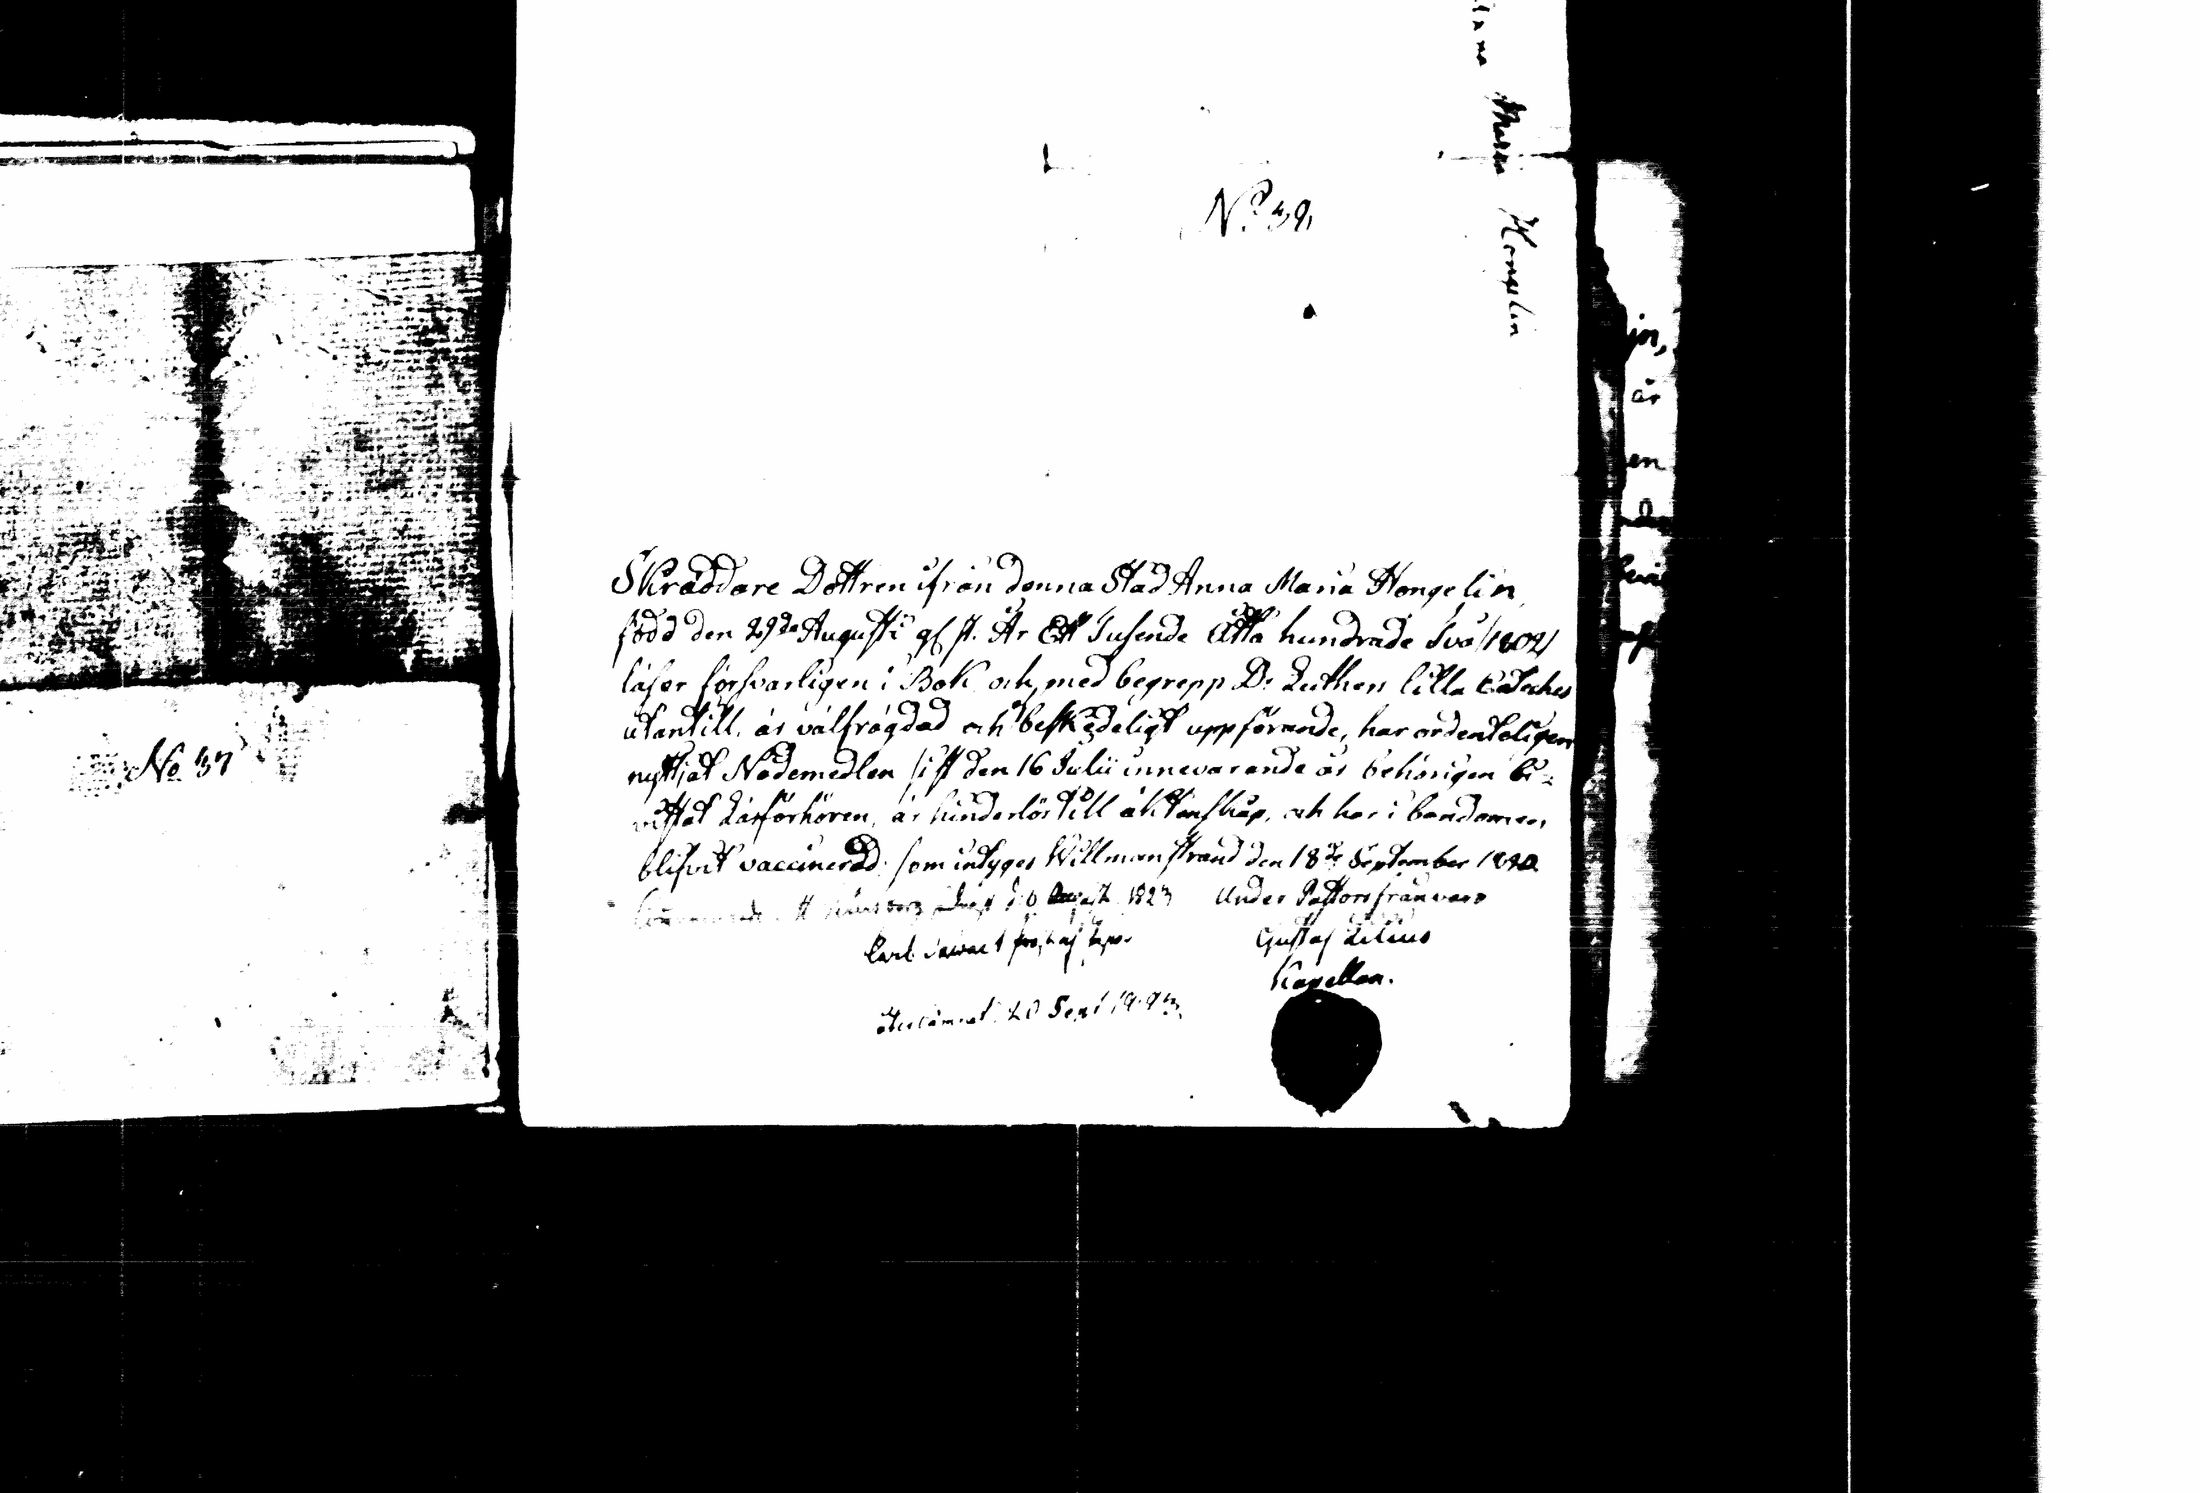 No 37
Anna Maria Hongelin
No 39,
Skräddare Dottren ifrån denna Stad Anna Maria Hongelin,
född den 29de Augusti gl. st. År Ett Tusende Åtta hundrade Två /1802/
läser försvarligen i Bok och med begrepp Dr Luthers lilla Cateches
utantill, är välfrägdad och beskedeligt uppförande, har ordenteligen
nyttjat Nådemedlen sist den 16 Julii innevarande år behörigen bi-
vistat Läsförhören, är hinderlös till äktenskap, och har i barndomen
blifvit vaccinerad; som intygas Willmanstrand den 18de September
August 1823
Under Pastors frånvaro
Carl
Gustaf Lilius
Kapellan.
20 Sept
in,
är
en